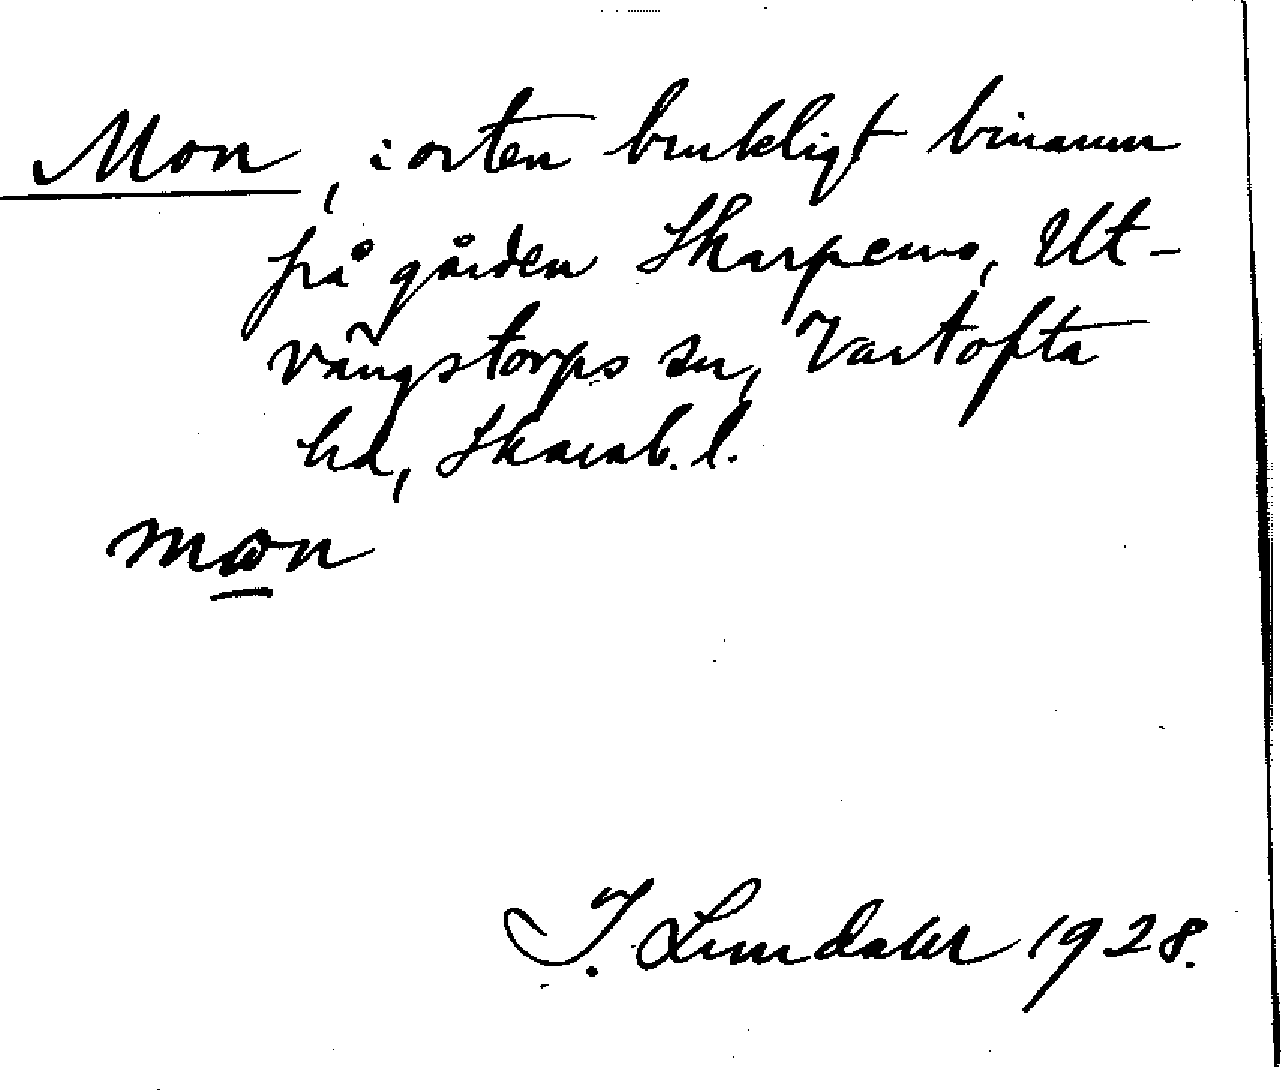 Mon, i orten brukligt binamn
på gården Skarpemo, Ut-
vängstorps sn, Vartofta
hd, Skarab. l.
mωn
J. Lundahl 1928.